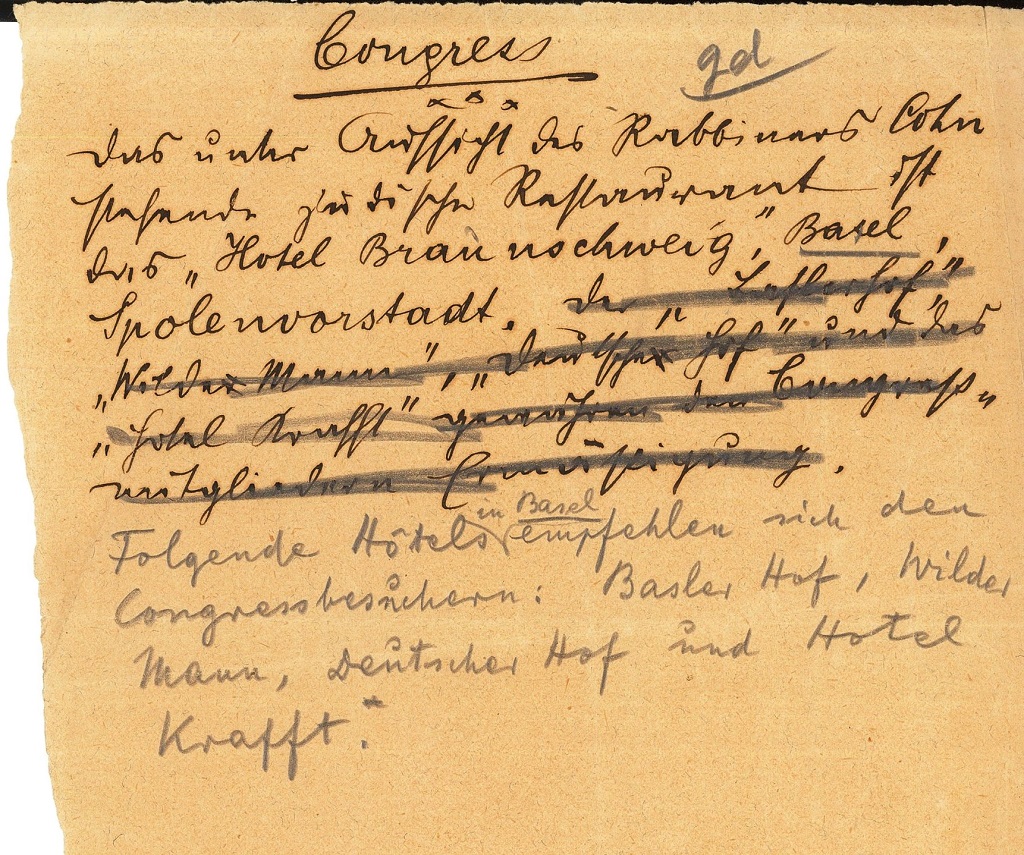 Congress
gd
x x x
Das unter Aufsicht des Rabbiners Cohn
stehende jüdische Restaurant ist
das „Hotel Braunschweig", Basel,
Spolenvorstadt. der „Baslerhof"
„Wilder Mann", „Deutscher Hof" und das
„Hotel Krafft" gewähren den Congress„
mitgliedern Ermäßigung.
in Basel
Folgende Hôtels empfehlen sich den
Congressbesuchern: Basler Hof, Wilder
Mann, Deutscher Hof und Hotel
Krafft."